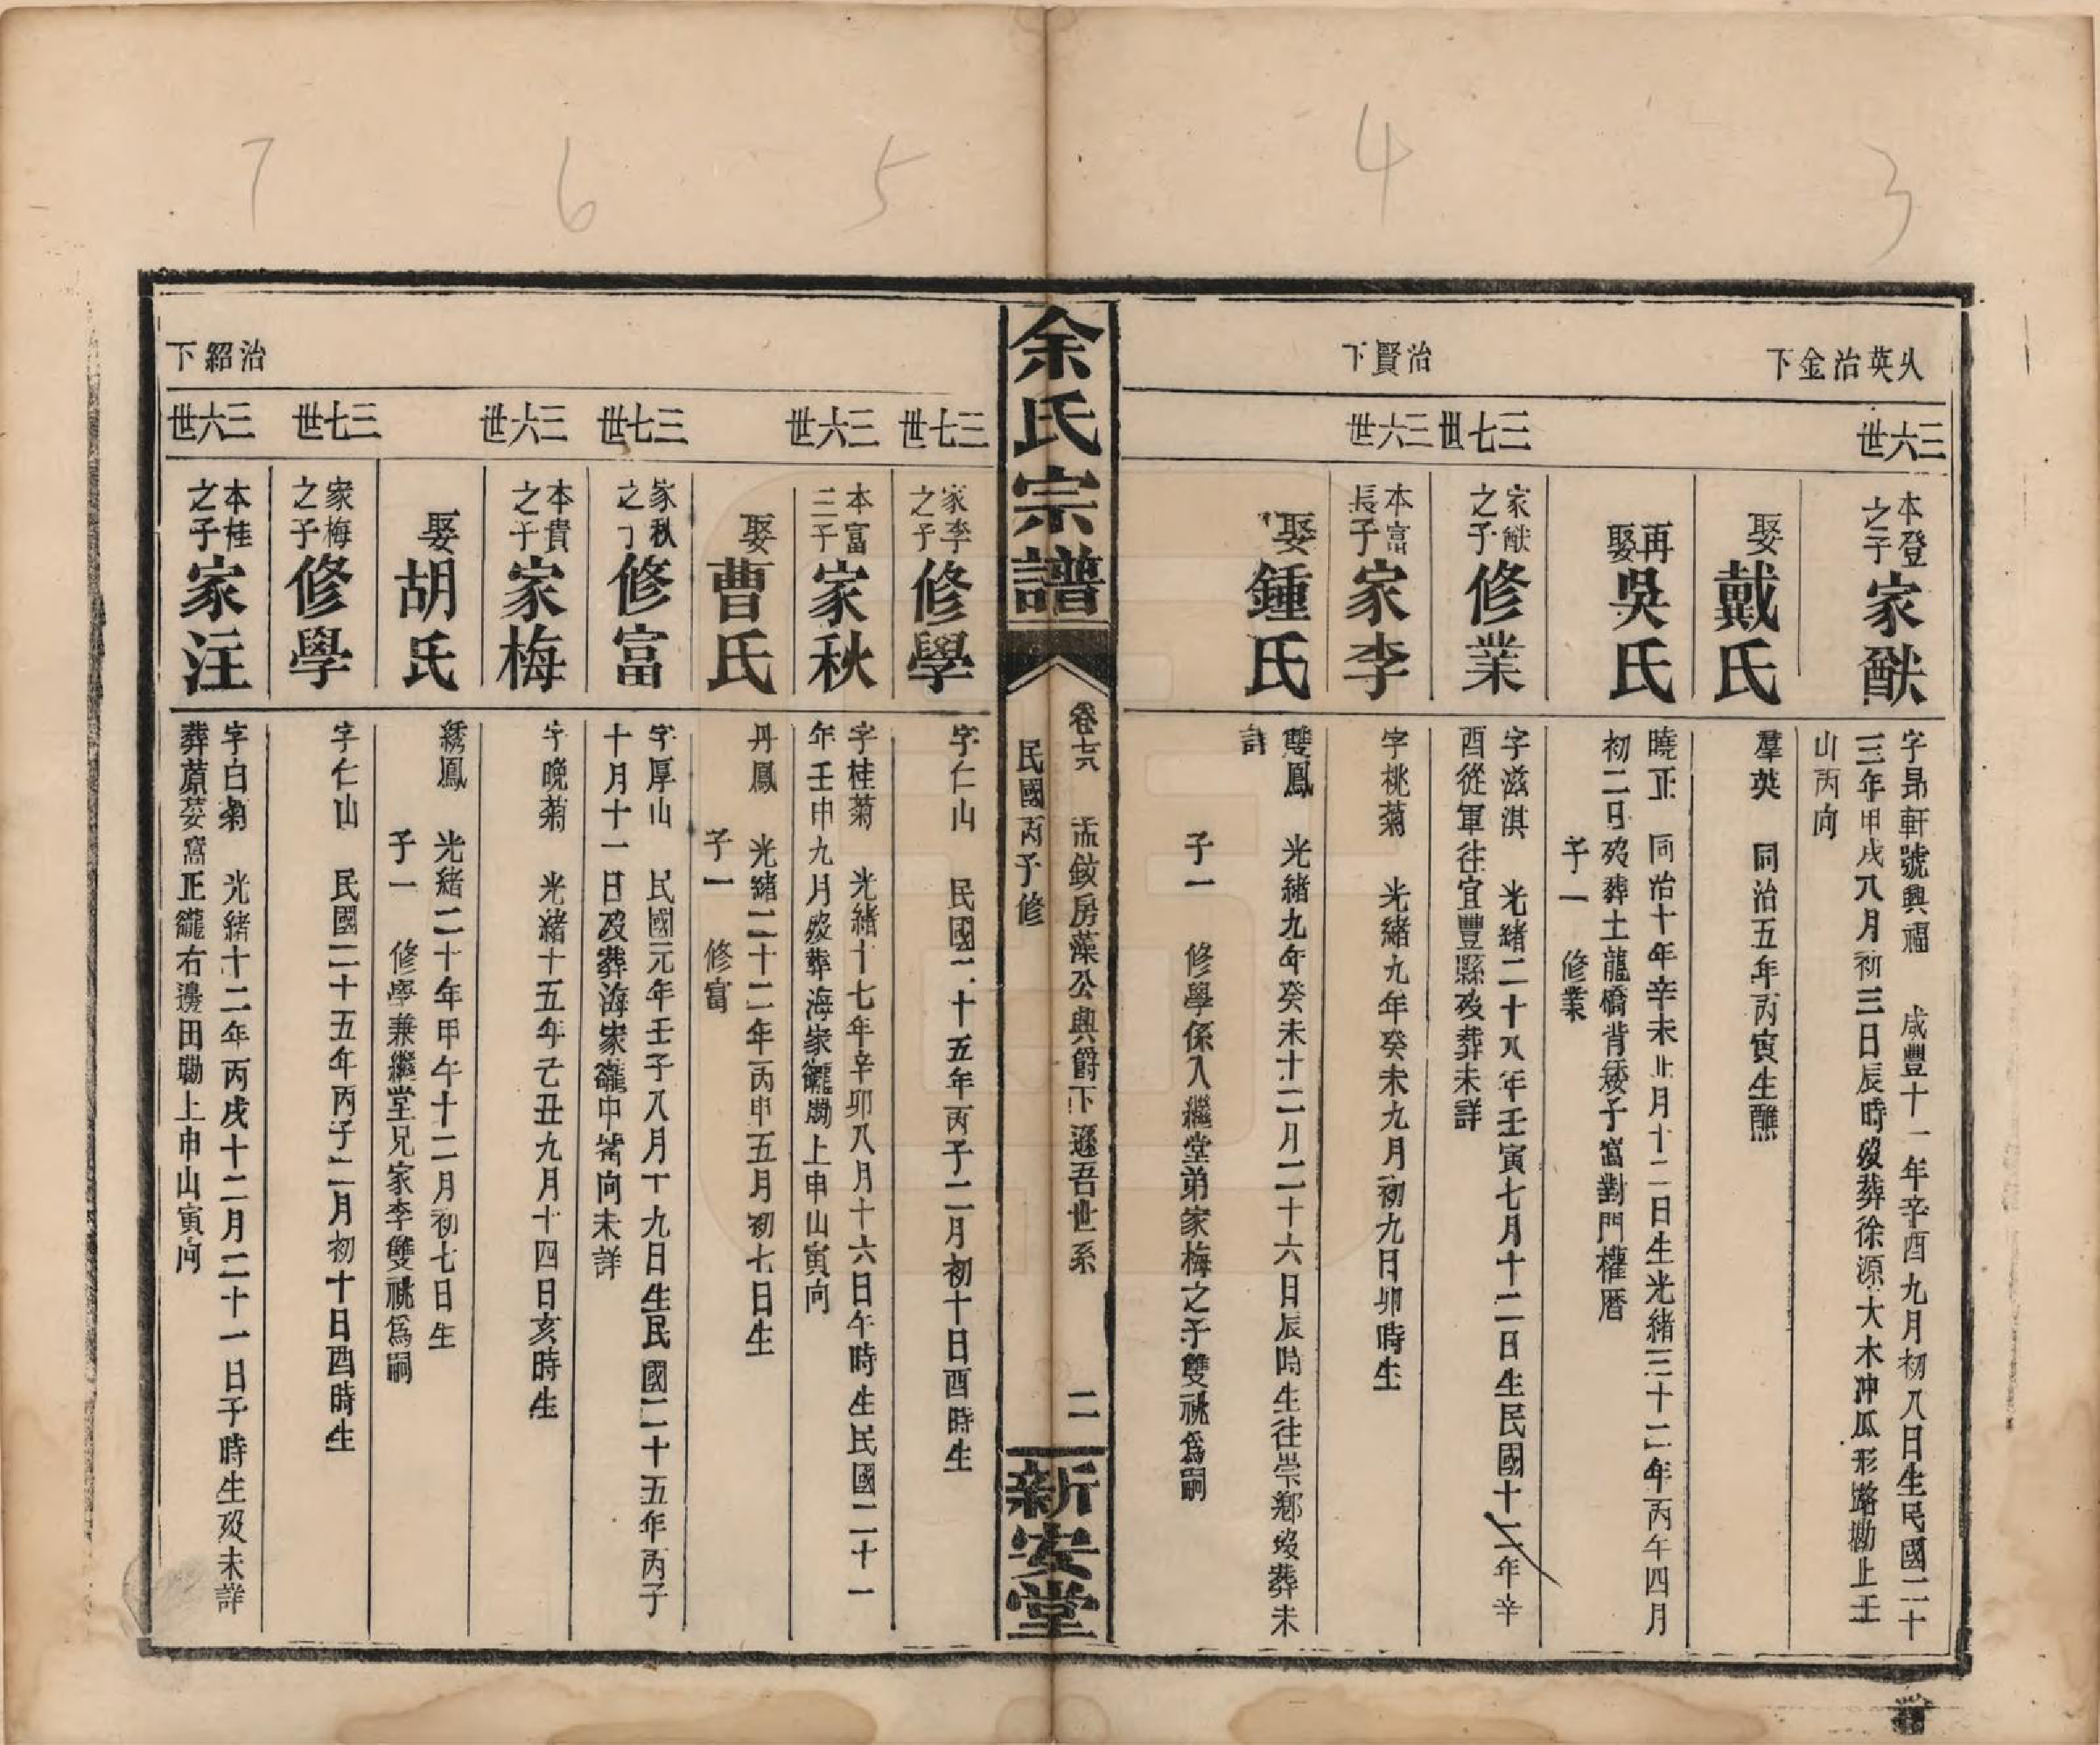 3
4
5
6
7
英治金下
三六世
本登之子 家猷
字昻軒號興福 咸豐十一年辛酉九月初八日生民國二十
三年甲戌八月初三日辰時歿葬徐源大木冲瓜形路勘上壬
山丙向
娶 戴氏
羣英 同治五年丙寅生醮
再娶 吳氏
曉正 同治十年辛未 月十二日生光緒三十二年丙午四月
初二日歿葬土龍橋背矮子窩對門權厝
子一 修業
三七世
家猷之子 修業
字滋淇 光緒二十八年壬寅七月十二日生民國十 年辛
酉從軍往宜豐縣歿葬未詳
治賢下
三六世
本富長子 家李
字桃菊 光緒九年癸未九月初九日卯時生
娶 鍾氏
雙鳳 光緒九年癸未十二月二十六日辰時生往崇鄉歿葬未
詳
子一 修學係入繼堂弟家梅之子雙祧爲嗣
余氏宗譜
卷 孟 房藻公典爵下遜吾世系 二
民國丙子修
新安堂
三七世
家李之子 修學
字仁山 民國二十五年丙子二月初十日酉時生
三六世
本富三子 家秋
字桂菊 光緒十七年辛卯八月十六日午時生民國二十一
年壬申九月歿葬海家 勘上申山寅向
娶 曹氏
丹鳳 光緒二十二年丙申五月初七日生
子一 修富
三七世
家秋之子 修富
字厚山 民國元年壬子八月十九日生民國二十五年丙子
十月十一日歿葬海家 中 向未詳
三六世
本貴之子 家梅
字晚菊 光緒十五年己丑九月十四日亥時生
娶 胡氏
綉鳳 光緒二十年甲午十二月初七日生
子一 修學兼繼堂兄家李雙祧爲嗣
三七世
家梅之子 修學
字仁山 民國二十五年丙子二月初十日酉時生
治紹下
三六世
本桂之子 家汪
字白菊 光緒十二年丙戌十二月二十一日子時生歿未詳
葬 窩正 右邊田勘上申山寅向